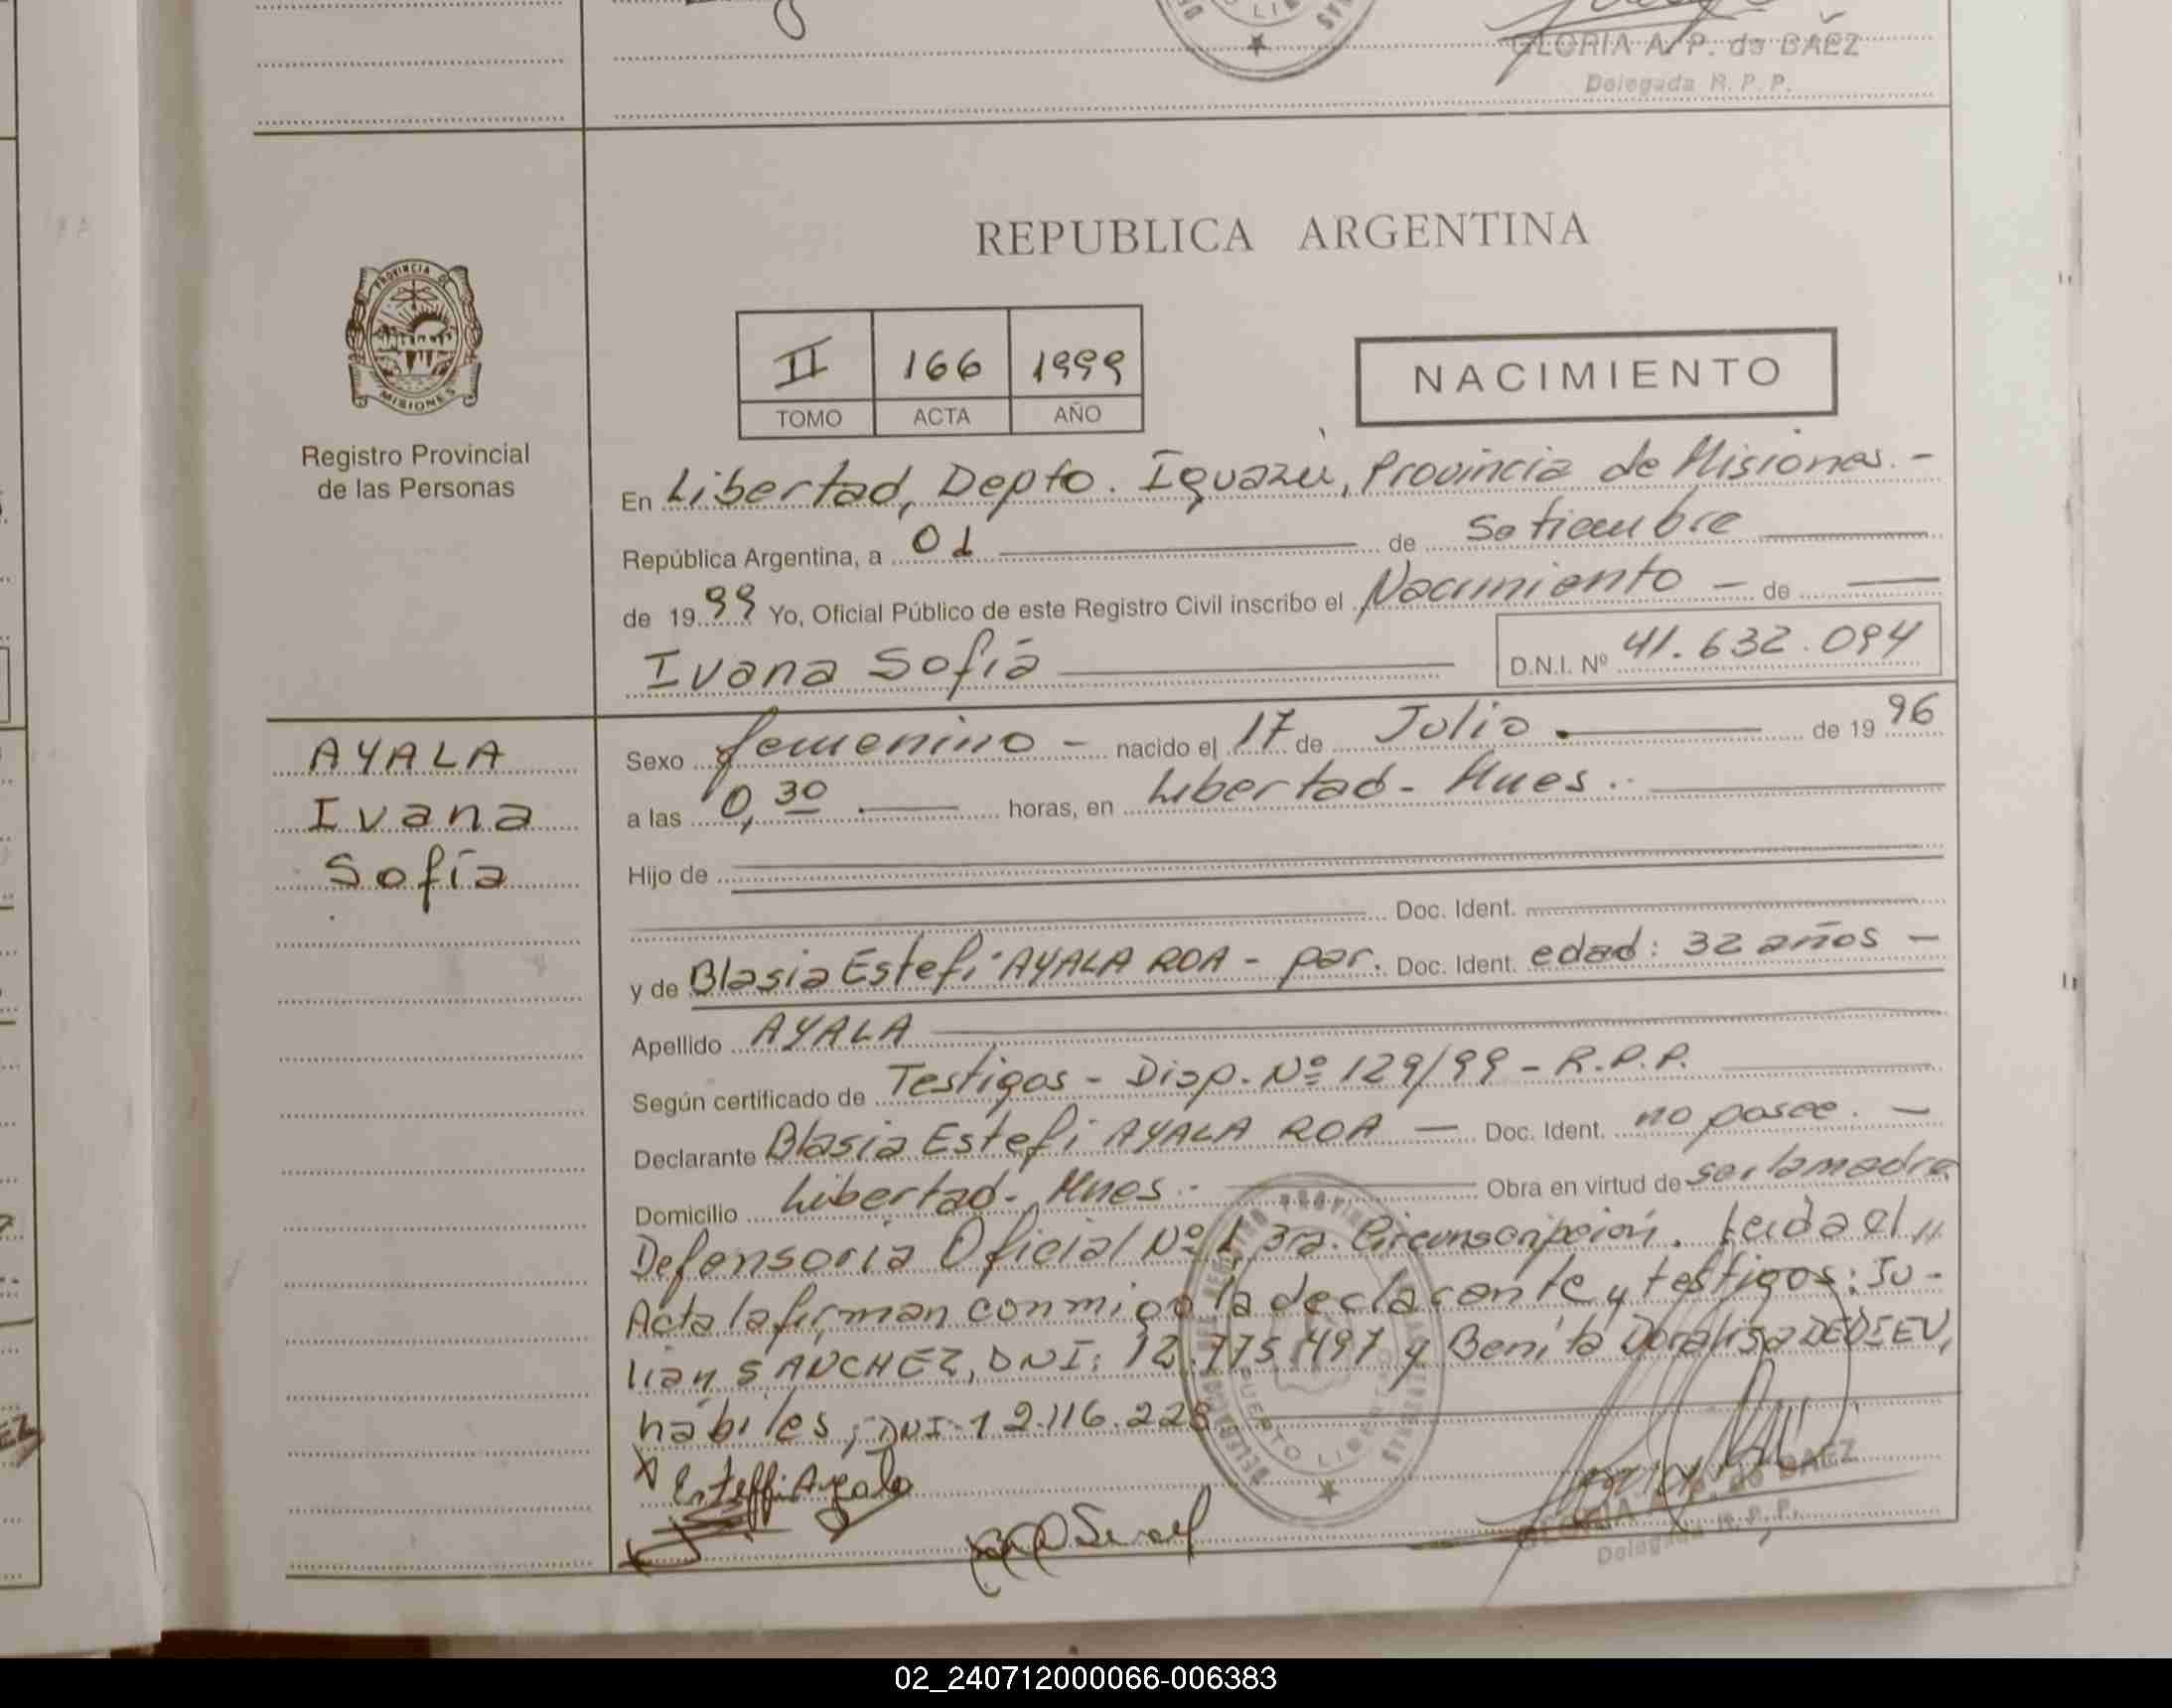 GLORIA A. P. de BAEZ
Delegada R. P. P.
REPUBLICA ARGENTINA
PROVINCIA DE
MISIONES
Registro Provincial
de las Personas
II 166 1999
TOMO ACTA AÑO
NACIMIENTO
En Libertad, Depto. Iguazú, Provincia de Misiones.-
República Argentina, a 01 de Setiembre
de 1999 Yo, Oficial Público de este Registro Civil inscribo el Nacimiento - de
Ivana Sofía D.N.I. Nº 41.632.094
AYALA
Ivana
Sofía
Sexo femenino - nacido el 17 de Julio de 1996
a las 0,30 horas, en Libertad - Mnes.-
Hijo de
Doc. Ident.
y de Blasia Estefi AYALA ROA - par. Doc. Ident. edad: 32 años -
Apellido AYALA
Según certificado de Testigos - Disp. Nº 129/99 - R.P.P.
Declarante Blasia Estefi AYALA ROA - Doc. Ident. no posee. -
Domicilio Libertad - Mnes.- Obra en virtud de ser la madre
Defensoria Oficial Nº 1, 3ra. Circunscripción. Leida el //
Acta la firman conmigo la declarante y testigos: Ju-
lian SANCHEZ, DNI: 12.775.497 y Benita Doralisa DEDIEU,
hábiles, DNI-12.116.228
Esteffi Ayala
PUERTO LIBERTAD
GLORIA A. P. de BAEZ
Delegada R. P. P.
02_240712000066-006383